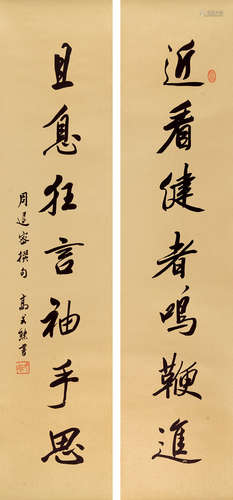 近看健者鳴鞭進
且息狂言袖手思
周退密撰句 高式熊書